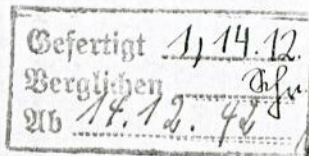 Gefertigt 1, 14.12.
Verglichen Schr.
Ab 14.12.42